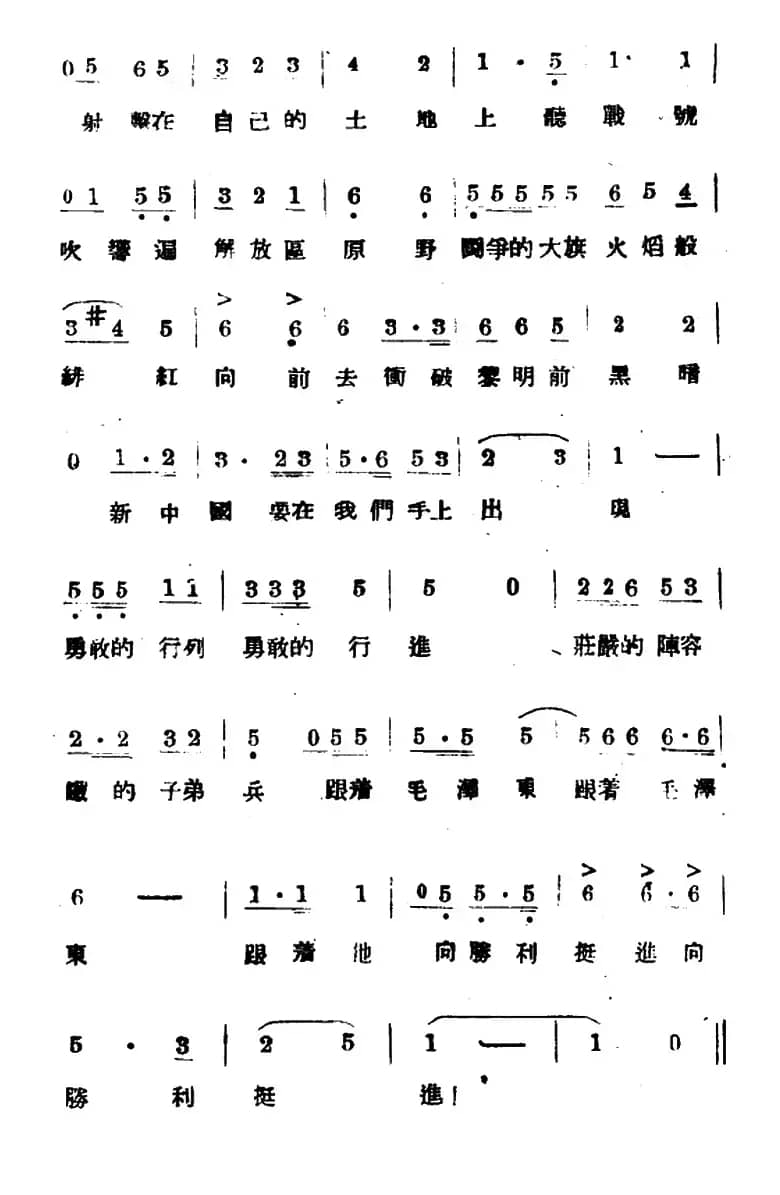 0 5 6 5 | 3 2 3 | 4 2 | 1 · 5 1 · 1 |
射擊在 自己的 土 地 上 聽 戰 號
0 1 5 5 | 3 2 1 | 6 6 | 5 5 5 5 5 5 6 5 4 |
吹響遍 解放區 原 野 鬪爭的大旗火焰般
3 #4 5 | 6 6 6 3 · 3 | 6 6 5 | 2 2
緋 紅 向 前 去 衝 破 黎明前 黑 暗
0 1 · 2 | 3 · 2 3 | 5 · 6 5 3 | 2 3 | 1 — |
新 中 國 要在 我 們 手上 出 現
5 5 5 1 1 | 3 3 3 5 | 5 0 | 2 2 6 5 3 |
勇敢的 行列 勇敢的 行 進 、 莊嚴的 陣容
2 · 2 3 2 | 5 0 5 5 | 5 · 5 5 | 5 6 6 6 · 6 |
的 子弟 兵 跟着 毛 澤 東 跟着 毛 澤
6 — | 1 · 1 1 | 0 5 5 · 5 | 6 6 · 6 |
東 跟 着 他 向 勝 利 挺 進 向
5 · 3 | 2 5 | 1 — | 1 0 ‖
勝 利 挺 進！